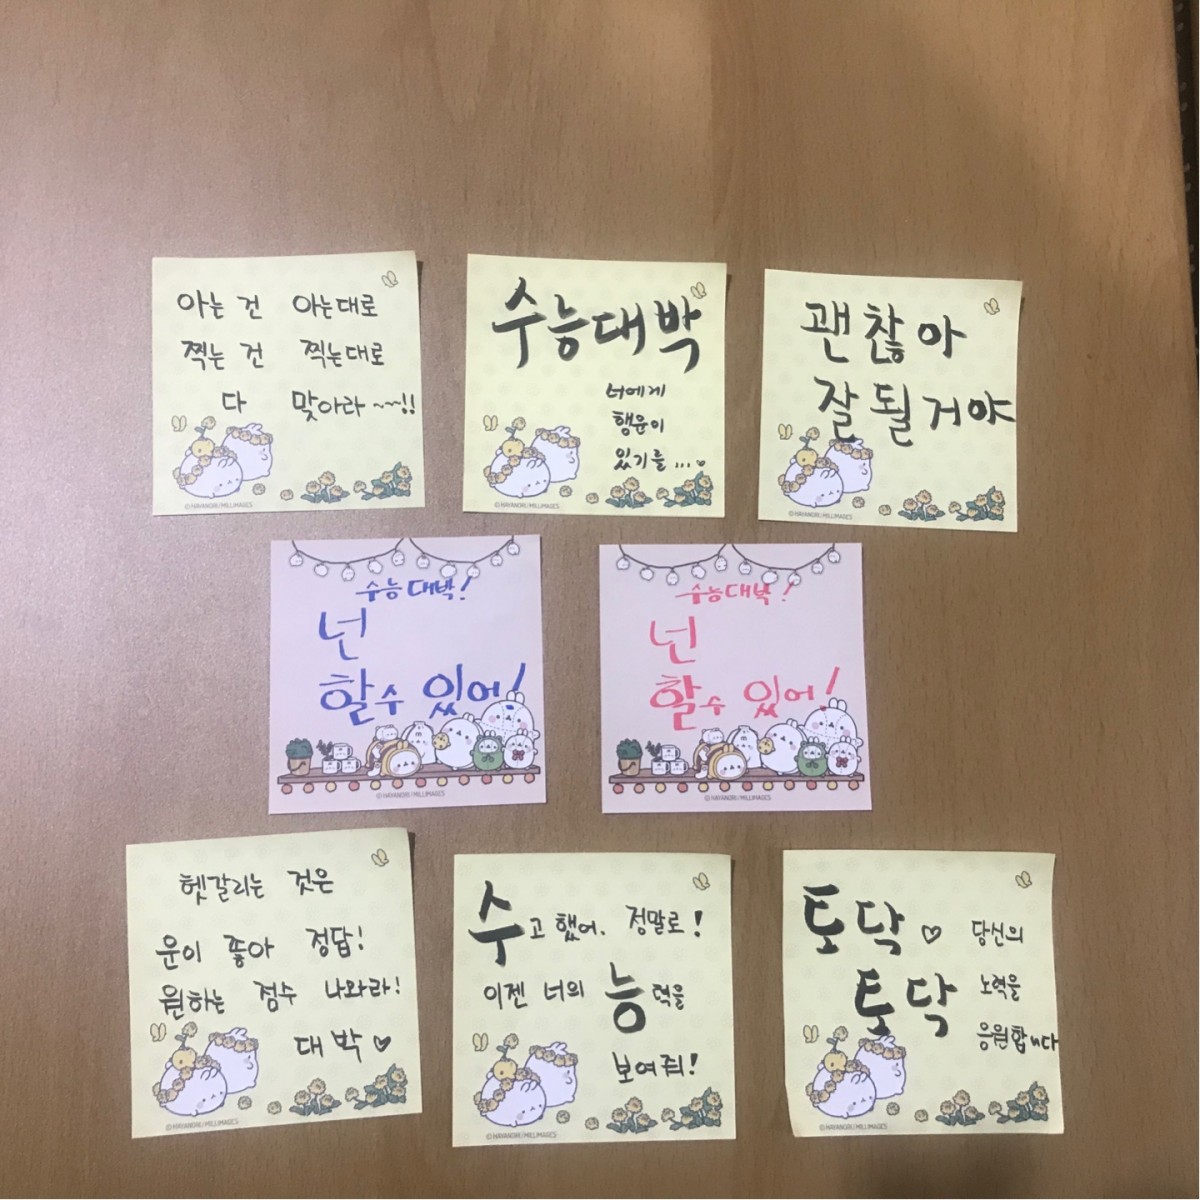 아는 건 아는대로
찍는 건 찍는대로
다 맞아라 ~~~!!
©HAYANORI/MILLIMAGES
수능대박
너에게
행운이
있기를...♡
©HAYANORI/MILLIMAGES
괜찮아
잘 될거야
©HAYANORI/MILLIMAGES
수능대박!
넌
할수 있어!
©HAYANORI/MILLIMAGES
수능대박!
넌
할수 있어!
©HAYANORI/MILLIMAGES
헷갈리는 것은
운이 좋아 정답!
원하는 점수 나와라!
대박♡
©HAYANORI/MILLIMAGES
수고 했어. 정말로!
이젠 너의 능력을
보여줘!
©HAYANORI/MILLIMAGES
토닥♡
토닥
당신의
노력을
응원합니다
©HAYANORI/MILLIMAGES